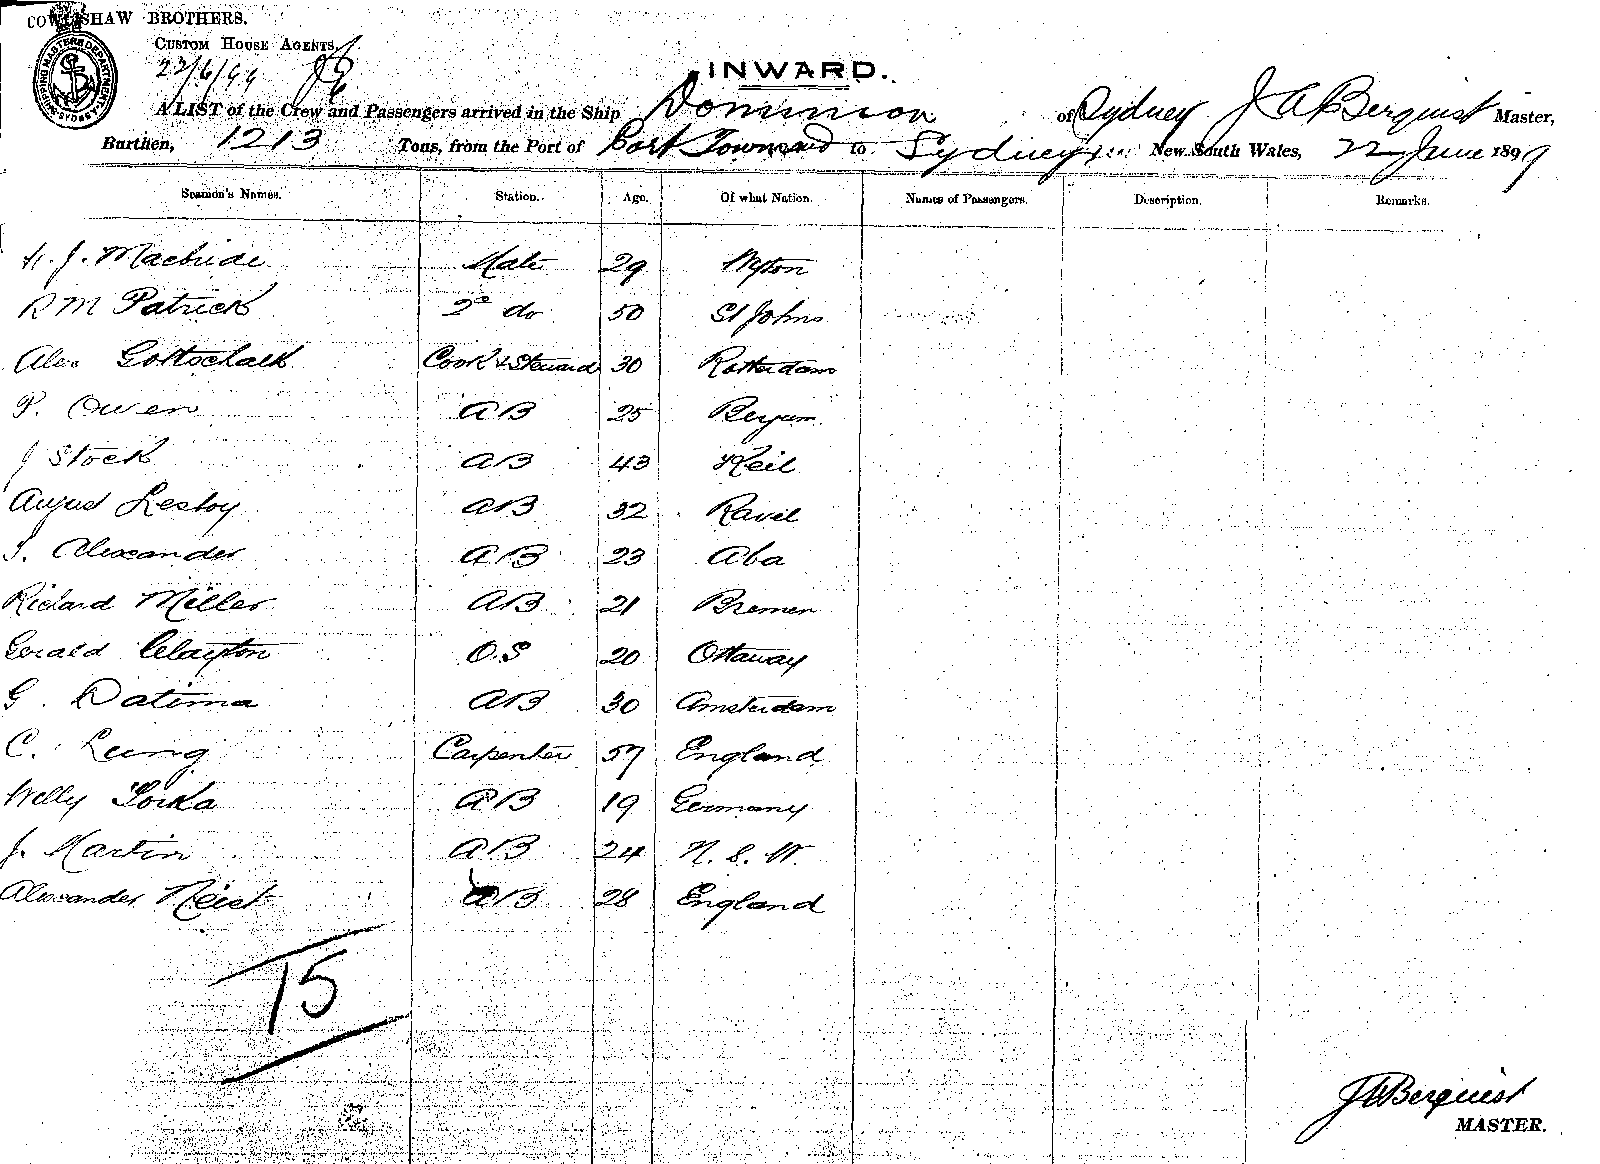 COWLISHAW BROTHERS.
CUSTOM HOUSE AGENTS,
22/6/99
SHIPPING MASTERS DEPARTMENT SYDNEY
INWARD.
A LIST of the Crew and Passengers arrived in the Ship Dominion of Sydney J A Berquist Master,
Burthen, 1213 Tons, from the Port of Port Townsend to Sydney New South Wales, 22 June 1899
Seamen's Names. Station. Age. Of what Nation. Names of Passengers. Description. Remarks.
H. J. Macbride Mate 29
R M Patrick 2d do 50 St Johns
Alex Gottschalk Cook & Steward 30 Rotterdam
P. Owen AB 25
J Stock AB 43 Keil
August Leshoy AB 32 Ravel
S. Alexander AB 23 Aba
Richard Miller AB 21 Bremen
Gerald Clayton O.S 20 Ottaway
G. Datema AB 30 Amsterdam
C. Leung Carpenter 57 England
Willy AB 19 Germany
J. Martin AB 24 N. S. W.
Alexander Neist AB 28 England
15
J A Berquist
MASTER.